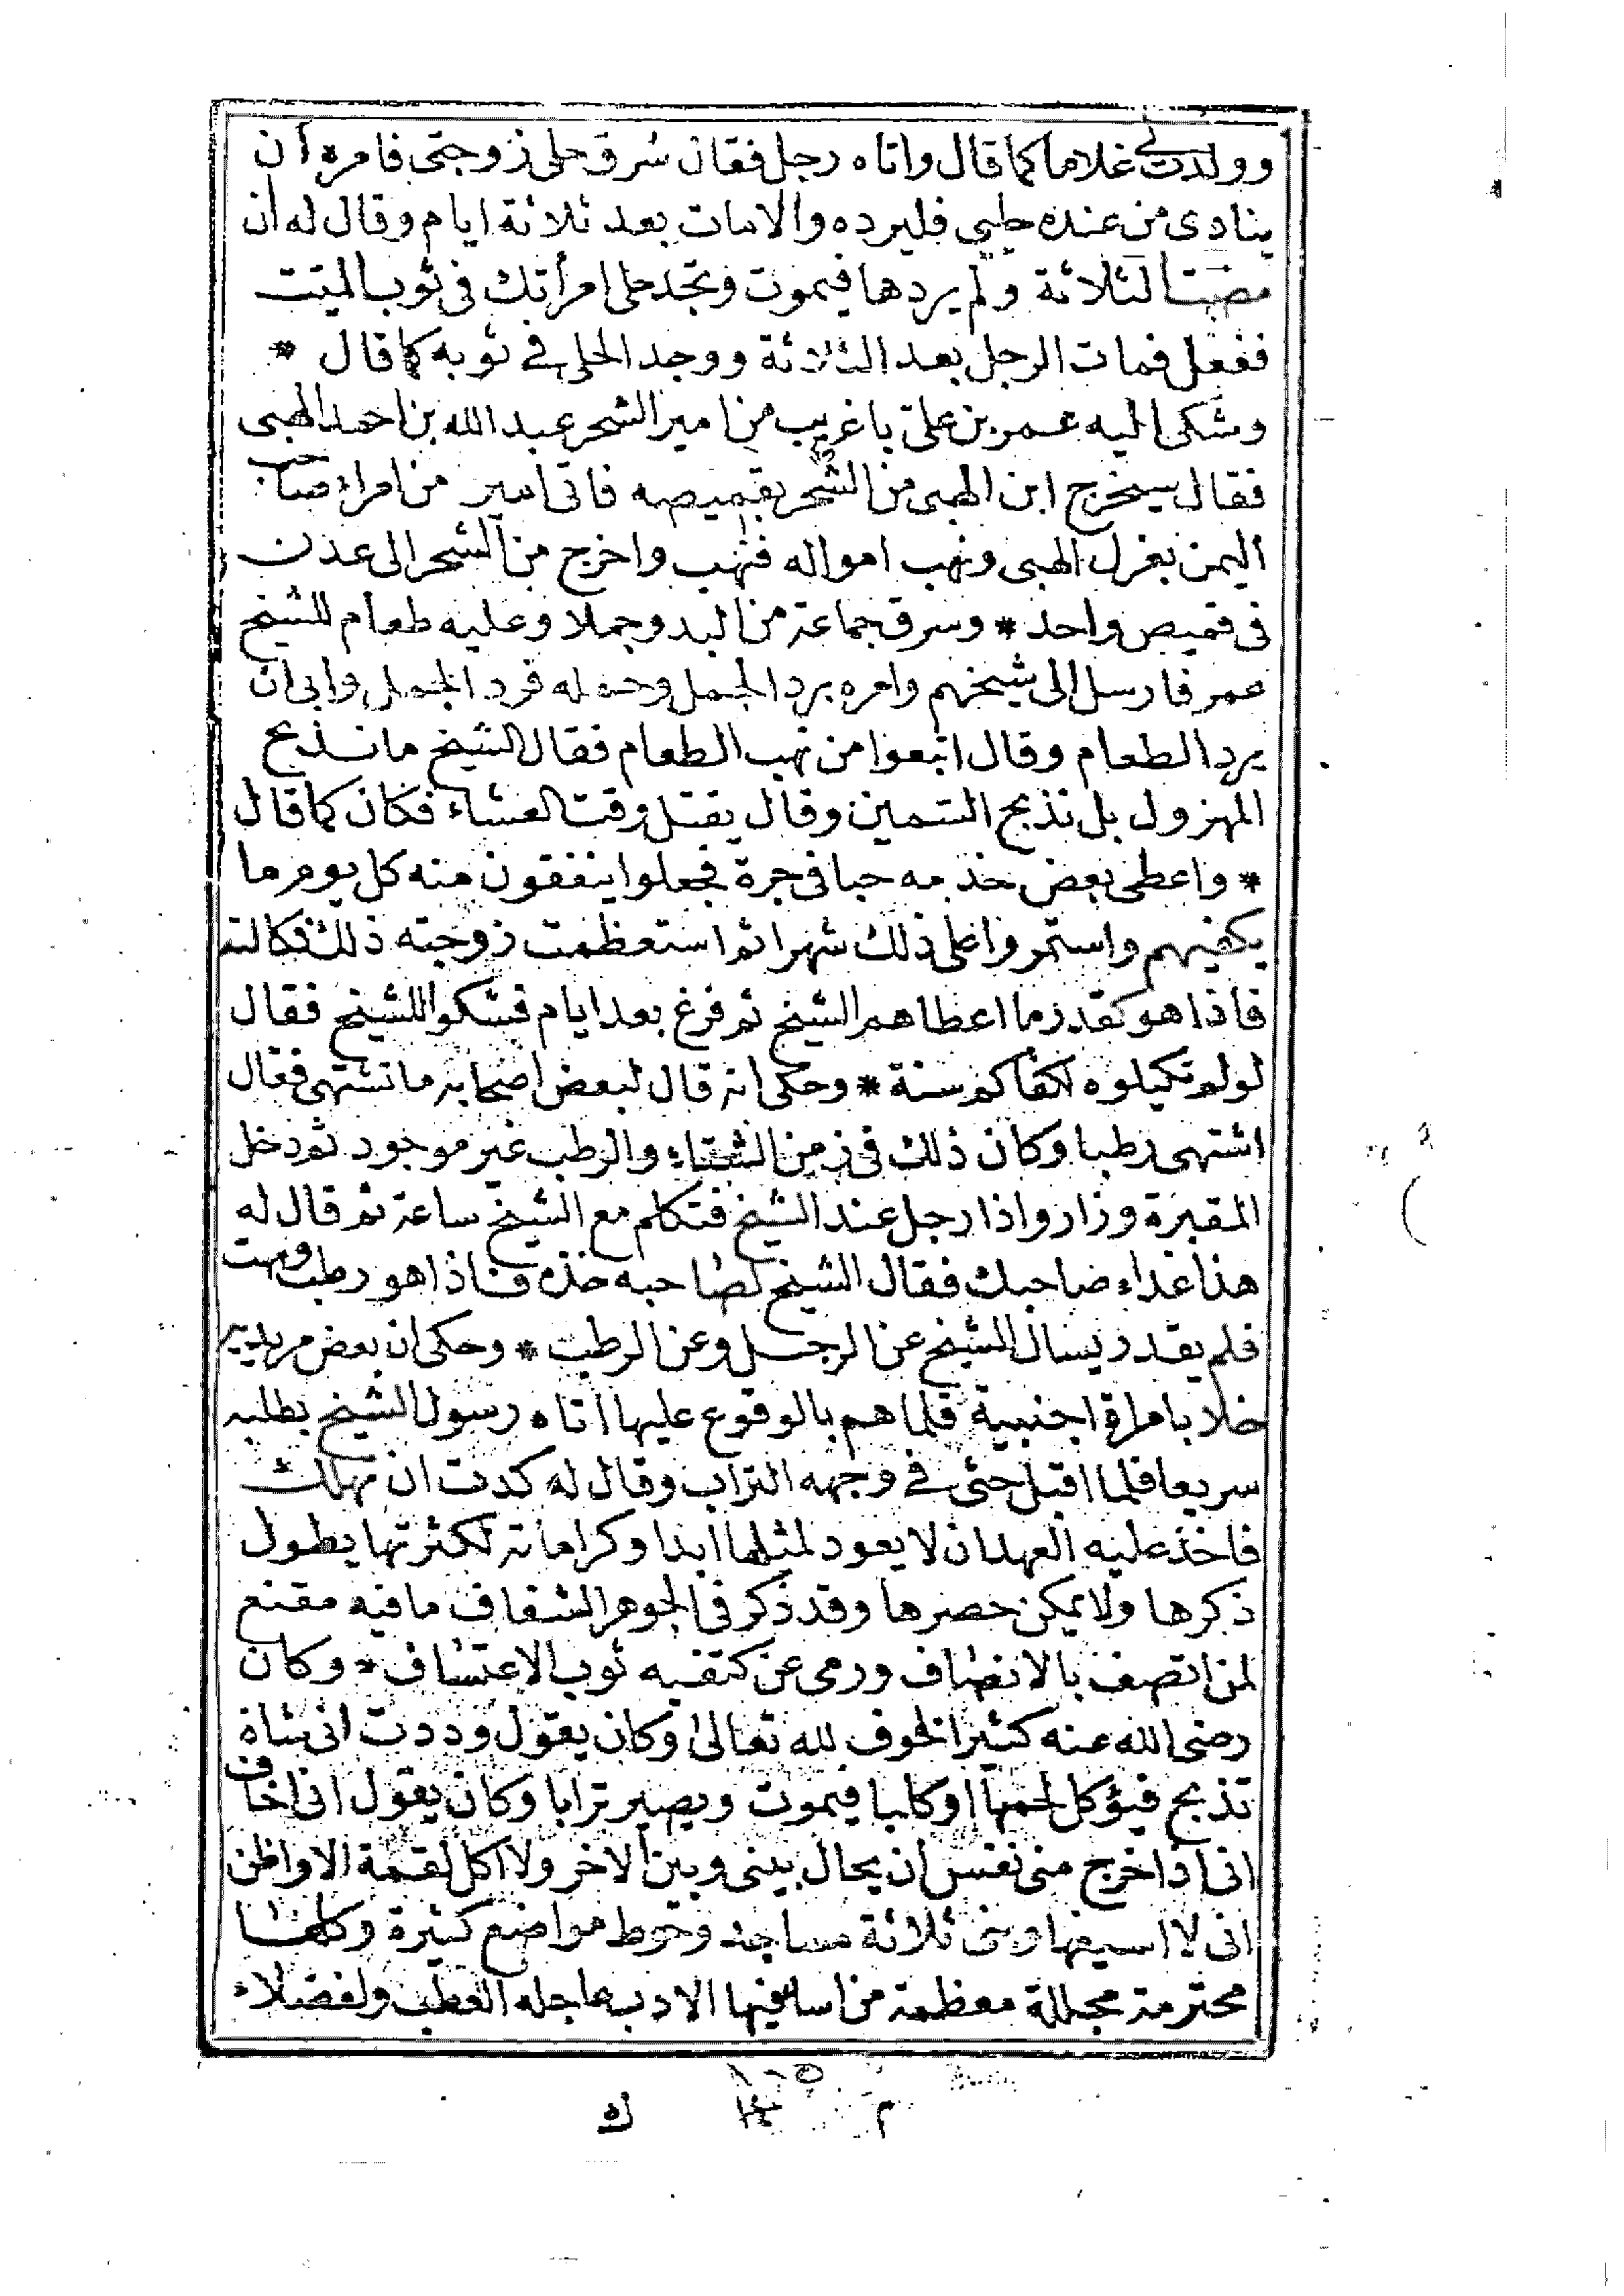 وولدت لي غلاما كما قال واتاه رجل فقال سُرق حلى زوجتى فامره أن
ينادى من عنده حليي فليرده والامات بعد ثلاثة ايام وقال له ان
مضت الثلاثة ولم يردها فيموت وتجد حلى امرأتك فى ثوب الميّت
ففعل فمات الرجل بعد الثلاثة ووجد الحلى فى ثوبه كما قال *
وشكى اليه عمر بن على باغريب من امير الشحر عبد الله بن احمد الهبى
فقال سيخرج ابن الهبى من الشحر بقميصه فاتى امير من امراء صاحب
اليمن بعزل الهبى ونهب امواله فنهب واخرج من الشحر الى عدن
فى قميص واحد * وسرق جماعة من البدو جملا وعليه طعام للشيخ
عمر فارسل الى شيخهم وامره برد الجمل وحمله فرد الجمل وابى ان
يرد الطعام وقال اتبعوا من نهب الطعام فقال الشيخ ما نذبح
المهزول بل نذبح السّمين وقال يقتل وقت العشاء فكان كما قال
* واعطى بعض خدمه حبا فى جرة فجعلوا ينفقون منه كل يوم ما
يكفيهم واستمروا على ذلك شهرا ثم استعظمت زوجته ذلك فكالته
فاذا هو كقدر ما اعطاهم الشيخ ثم فرغ بعد ايام فشكوا للشيخ فقال
لو لم تكيلوه لكفاكم سنة * وحكى انه قال لبعض اصحابه ما تشتهى فقال
اشتهى رطبا وكان ذلك فى زمن الشتاء والرطب غير موجود ثم دخل
المقبرة وزار واذا رجل عند الشيخ فتكلم مع الشيخ ساعة ثم قال له
هذا غداء صاحبك فقال الشيخ لصاحبه خذه فاذا هو رطب وبهت
فلم يقدر يسال الشيخ عن الرجل وعن الرطب * وحكى ان بعض مريديه
خلا بامراة اجنبية فلما هم بالوقوع عليها اتاه رسول الشيخ يطلبه
سريعا فلما اقبل حثى فى وجهه التراب وقال له كدت ان تهلك
فاخذ عليه العهد ان لا يعود لمثلها ابدا وكراماته لكثرتها يطول
ذكرها ولا يمكن حصرها وقد ذكر فى الجوهر الشفاف ما فيه مقنع
لمن اتصف بالانصاف ورمى عن كتفيه ثوب الاعتساف * وكان
رضى الله عنه كثير الخوف لله تعالى وكان يقول وددت انى شاة
تذبح فيؤكل لحمها او كلبا فيموت ويصير ترابا وكان يقول انى اخاف
انى اذا خرج منى نفس ان يحال بينى وبين الاخر ولا اكل لقمة الا واظن
انى لا اسيغها وبنى ثلاثة مساجد وحوط مواضع كثيرة وكلها
محترمة مجللة معظمة من اسا فيها الادب عاجله العطب ولفضلاء